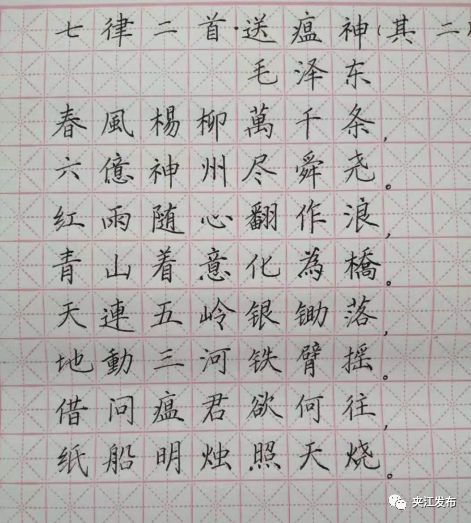 七律二首·送瘟神(其二)
毛泽东
春風楊柳萬千条,
六億神州尽舜尧。
红雨随心翻作浪,
青山着意化為橋。
天連五岭银锄落,
地動三河铁臂摇。
借问瘟君欲何往,
纸船明烛照天烧。
夹江发布